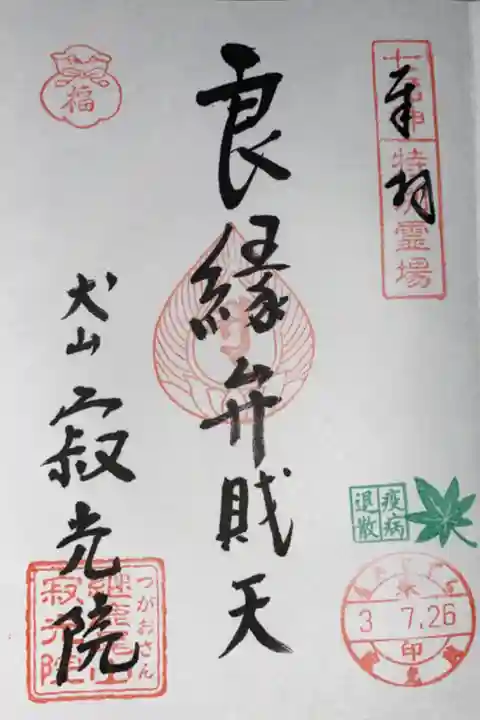 奉拝
七福神
特別霊場
良縁弁財天
犬山
寂光院
福
疫病
退散
3 7.26
印
つがおさん
継鹿尾山
寂光院